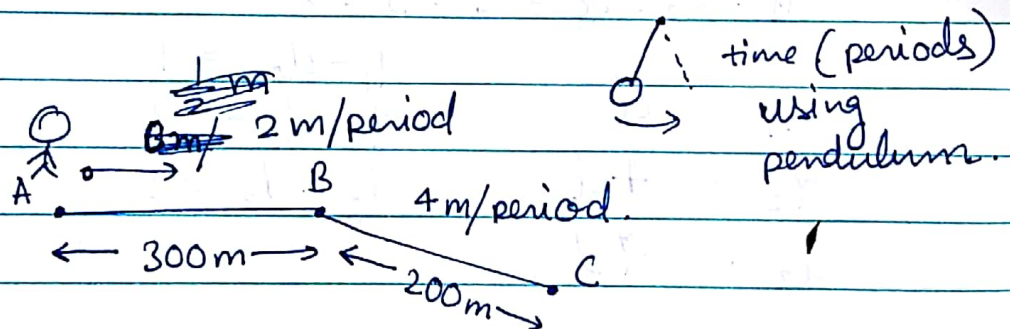 time (periods)
using
pendulum.
2 m/period
A
B
4 m/period.
300m
200m
C